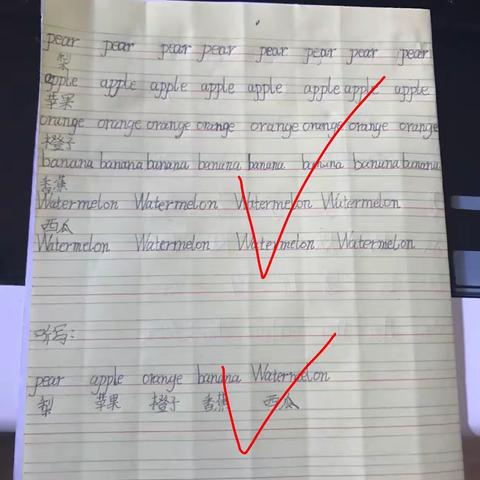 pear pear pear pear pear pear pear pear
梨
apple apple apple apple apple apple apple apple
苹果
orange orange orange orange orange orange orange orange
橙子
banana banana banana banana banana banana banana banana
香蕉
Watermelon Watermelon Watermelon Watermelon
西瓜
Watermelon Watermelon Watermelon Watermelon
听写:
pear apple orange banana Watermelon
梨 苹果 橙子 香蕉 西瓜